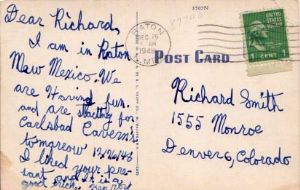 Dear Richard,
I am in Raton
New Mexico. We
are Having fun.
and are starting for
Carlsbad Caverns
tomgreow 12/26/48
I liked your pre-
sant and it is a
good
RATON
DEC 26
1948
N. MEX.
POST CARD
UNITED STATES
1 CENT
Richard Smith
1555 Monroe
Denver 6, Colorado